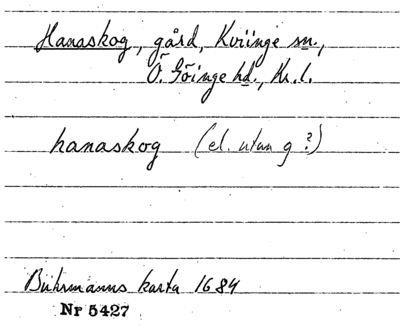 Hanaskog, gård, Kviinge sn.,
Ö. Göinge hd., Kr. l.
hanaskog (el. utan g?)
Buhrmanns karta 1684
Nr 5427